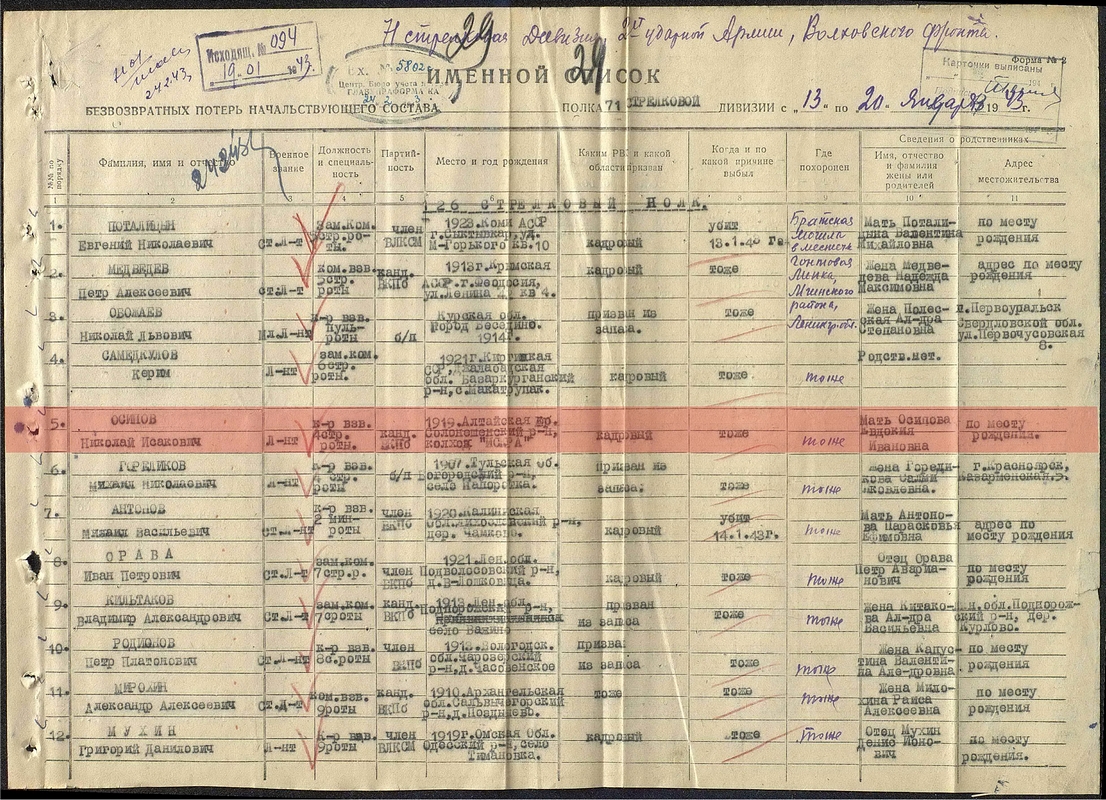 71 стрелковая Дивизия, 2й ударной Армии, Волховского фронта.
Исходящ. № 094
19.01 43.
24.2.43.
29
ВХ. № 5802с
Форма № 2
Карточки выписаны
ИМЕННОЙ СПИСОК
БЕЗВОЗВРАТНЫХ ПОТЕРЬ НАЧАЛЬСТВУЮЩЕГО СОСТАВА ПОЛКА 71 СТРЕЛКОВОЙ ДИВИЗИИ с „13" по 20 Января 1943 г.
№№ по порядку | Фамилия, имя и отчество | Военное звание | Должность и специальность | Партийность | Место и год рождения | Каким РВК и какой области призван | Когда и по какой причине выбыл | Где похоронен | Сведения о родственниках
Имя, отчество и фамилия жены или родителей | Адрес местожительства
1 2 3 4 5 6 7 8 9 10 11
126 СТРЕЛКОВЫЙ ПОЛК.
1. ПОТАЛИЦЫН зам.ком. член 1923.Коми АССР убит Братская Мать Потали- по месту
Евгений Николаевич ст.л-т стр.роты. ВЛКСМ г.Сыктывкар,ул. М-Горького кв.10 кадровый 13.1.43 г. могила в местечк. цына Валентина Михайловна рождения
2. МЕДВЕДЕВ ком.взв. канд. 1913г.Крымская кадровый тоже Гонтовая Жена Медве- адрес по месту
Петр Алексеевич ст.л-т 5стр. роты ВКПб АССР.г.Феодосия, ул.Ленина кв 4. Липка, Мгинского дева Надежда Максимовна рождения
3. ОБОЖАЕВ к-р взв. Курская обл. призван из тоже района, Жена Полес- г.Первоуральск
Николай Львович Мл.Л-нт пуль-роты б/п город Беседино. 1914г. запаса. Ленингр.обл. ская Ал-дра Степановна Свердловской обл. ул.Первочусовская 8.
4. САМЕДКУЛОВ зам.ком. 1921г.Киргизкая Родств.нет.
Керим Л-нт 6стр. роты. ССР,Джалабадская обл. Базаркурганский р-н, кадровый тоже тоже
5. ОСИПОВ к-р взв. 1919.Алтайская Мать Осипова по месту
Николай Исакович Л-нт 4стр. роты канд. ВКПб Солонешенский р-н, колхоз "ИСКРА" кадровый тоже тоже Евдокия Ивановна рождения.
6. ГОРЕЛИКОВ к-р взв. 1907.Тульская об. призван из г.Красноярск,
Михаил Николаевич Л-нт 4 стр. роты б/п Богородский р-н, село запаса. тоже тоже Яковлевна. Казарменная.5.
7. АНТОНОВ к-р взв. член 1920.Калининская убит Мать Антоно- адрес по
Михаил Васильевич ст.л-нт 2 мин-роты ВКПб дер. Чамково. кадровый 14.1.43г. тоже ва Парасковья Ефимовна месту рождения
8. ОРАВА зам.ком. 1921.Лен.обл. Отец Орава по месту
Иван Петрович Ст.Л-нт 7стр.р. член ВКПб Подпорожский р-н, кадровый тоже тоже Петр рождения
9. КИЛЬТАКОВ зам.ком. канд. 1913.Лен.обл. призван тоже Жена
Владимир Александрович Ст.Л-нт 7строты ВКПб Подпорожский р-н, село Важино из запаса тоже Ал-дра Васильевна Курлово.
10. РОДИОНОВ к-р взв. член 1912.Вологодск. призван Жена по месту
Петр Платонович ст.Л-нт роты ВКПб обл.Чарозерский из запаса тоже тоже Валентина Але-дровна рождения
11. МИРОХИН ком.взв. канд. 1910.Архангельская тоже тоже Жена по месту
Александр Алексеевич Ст.Л-т 9роты ВКПб тоже Раиса Алексеевна рождения
12. МУХИН к-р взв. член 1919г.Омская Обл. кадровый тоже тоже Отец Мухин по месту
Григорий Данилович Л-нт 9роты ВЛКСМ Одесский р-н,село Тимановка. рождения.